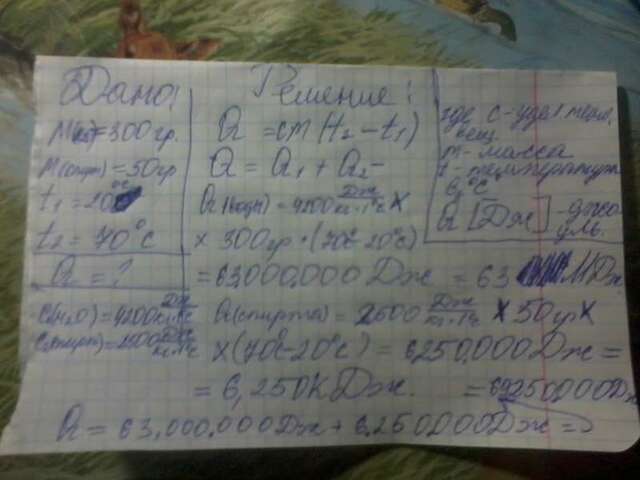 Дано:
m(в)=300гр.
m(спирт)=50гр
t₁=20°C
t₂=70°C
Q=?
C(H₂O)=4200 Дж/кг·1°C
C(спирт)=2500 Дж/кг·1°C
Решение:
Q=cm(t₂-t₁)
Q=Q₁+Q₂-
Q(воды)=4200 Дж/кг·1°C X
X 300гр·(70°C-20°C)
=63,000,000Дж=63 МДж
Q(спирта)=2500 Дж/кг·1°C X 50гр X
X(70°C-20°C)=6250,000Дж=
=6,250КДж. =69250,000Дж
Q=63,000,000Дж+6,250,000Дж=
где c-удел тепл.
вещ
m-масса
t-температура
в,°C
Q[Дж]-джо
уль.